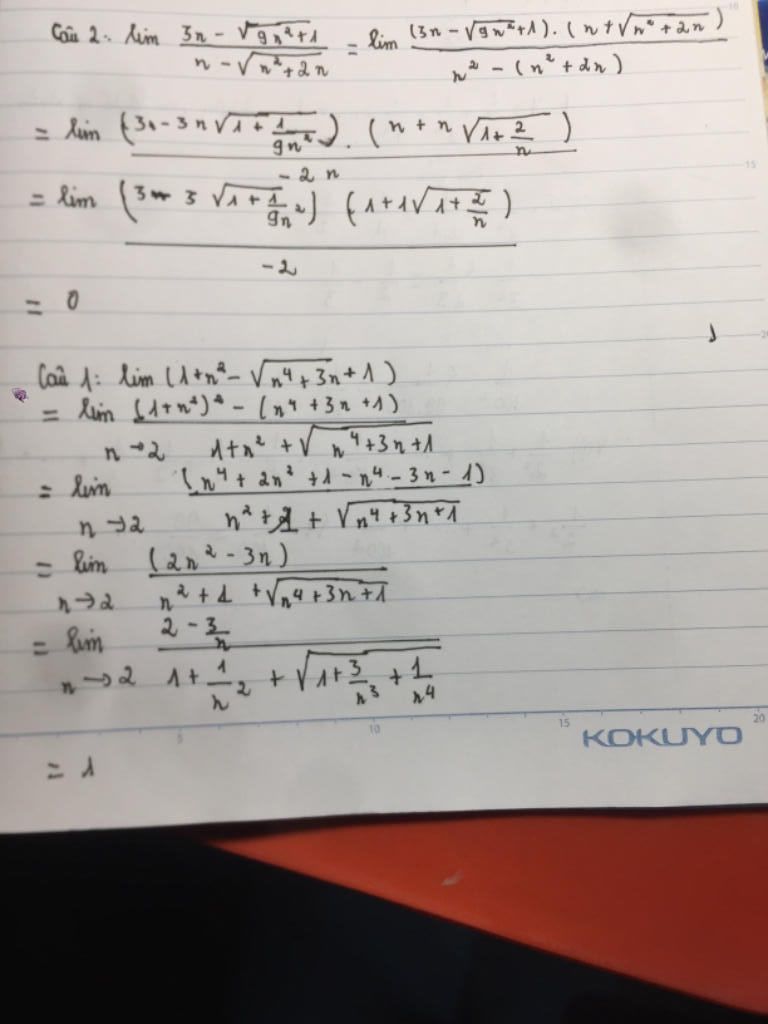 Câu 2: lim (3n - √(9n²+1))/(n - √(n²+2n)) = lim ((3n - √(9n²+1)).(n + √(n²+2n)))/(n² - (n²+2n))
= lim ((3n - 3n√(1 + 1/(9n²))).(n + n√(1 + 2/n)))/(-2n)
= lim ((3 - 3√(1 + 1/(9n²)))(1 + 1√(1 + 2/n)))/(-2)
= 0
Câu 1: lim (1+n² - √(n⁴+3n+1))
= lim n→2 ((1+n²)² - (n⁴+3n+1))/(1+n² + √(n⁴+3n+1))
= lim n→2 (n⁴ + 2n² + 1 - n⁴ - 3n - 1)/(n² + 1 + √(n⁴+3n+1))
= lim n→2 (2n² - 3n)/(n² + 1 + √(n⁴+3n+1))
= lim n→2 (2 - 3/n)/(1 + 1/n² + √(1 + 3/n³ + 1/n⁴))
5 10 15 20
KOKUYO
= 1